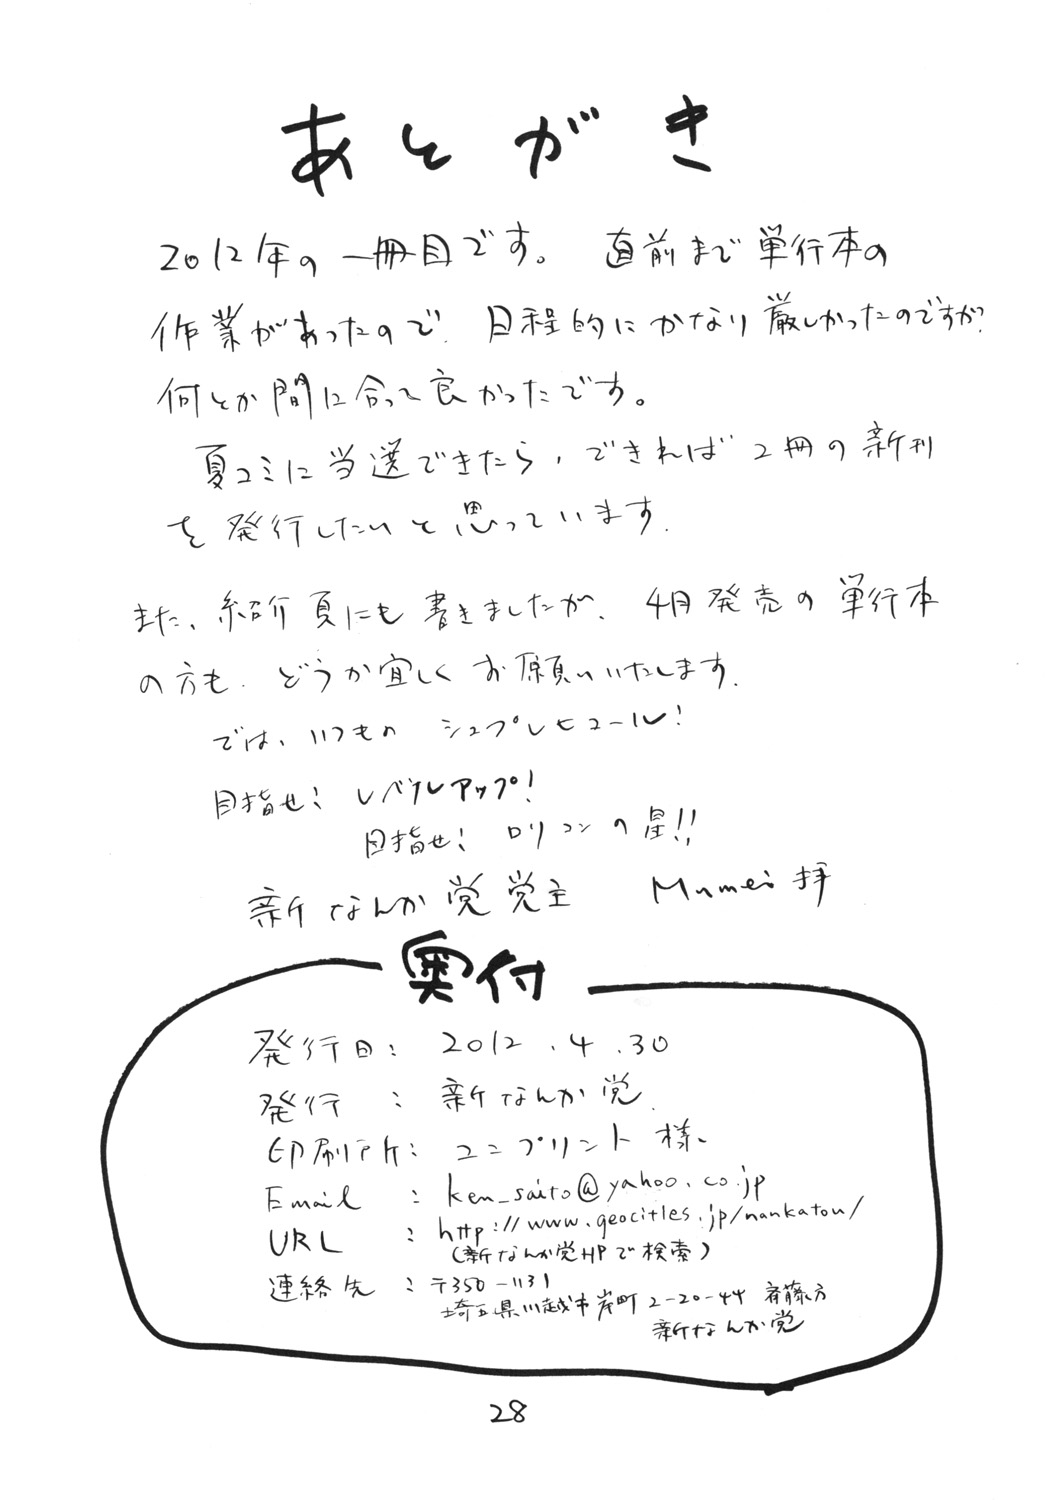 あとがき
2012年の一冊目です。 直前まで単行本の
作業があったので、日程的にかなり厳しかったのですが、
何とか間に合って良かったです。
夏コミに当選できたら、できれば2冊の新刊
を発行したいと思っています。
また、紹介頁にも書きましたが、4月発売の単行本
の方も、どうか宜しくお願いいたします。
では、いつものシュプレヒコール!
目指せ! レベルアップ!
目指せ! ロリコンの星!!
新なんか党党主 Mumei 拝
奥付
発行日: 2012.4.30
発行 : 新なんか党
印刷所: ユニプリント 様、
Email : ken_saito@yahoo.co.jp
URL : http://www.geocities.jp/nankatou/
(新なんか党HPで検索)
連絡先 : 〒350-1131
埼玉県川越市岸町2-20-44 斉藤方
新なんか党
28